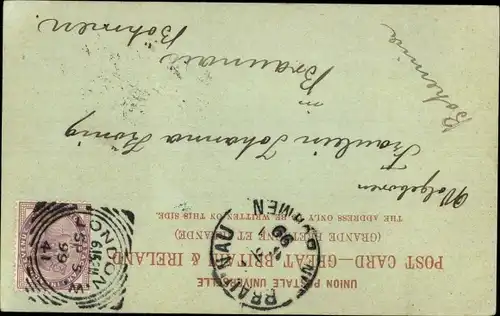 UNION POSTALE UNIVERSELLE
POST CARD—GREAT BRITAIN & IRELAND
(GRANDE BRETAGNE ET IRLANDE)
THE ADDRESS ONLY TO BE WRITTEN ON THIS SIDE.
BRAUNAU
99
LONDON W
6.15 PM
SP 5
99
41
Wolgeboren
Fräulein Johanna König
in
Braunau
Böhmen
Bohemia